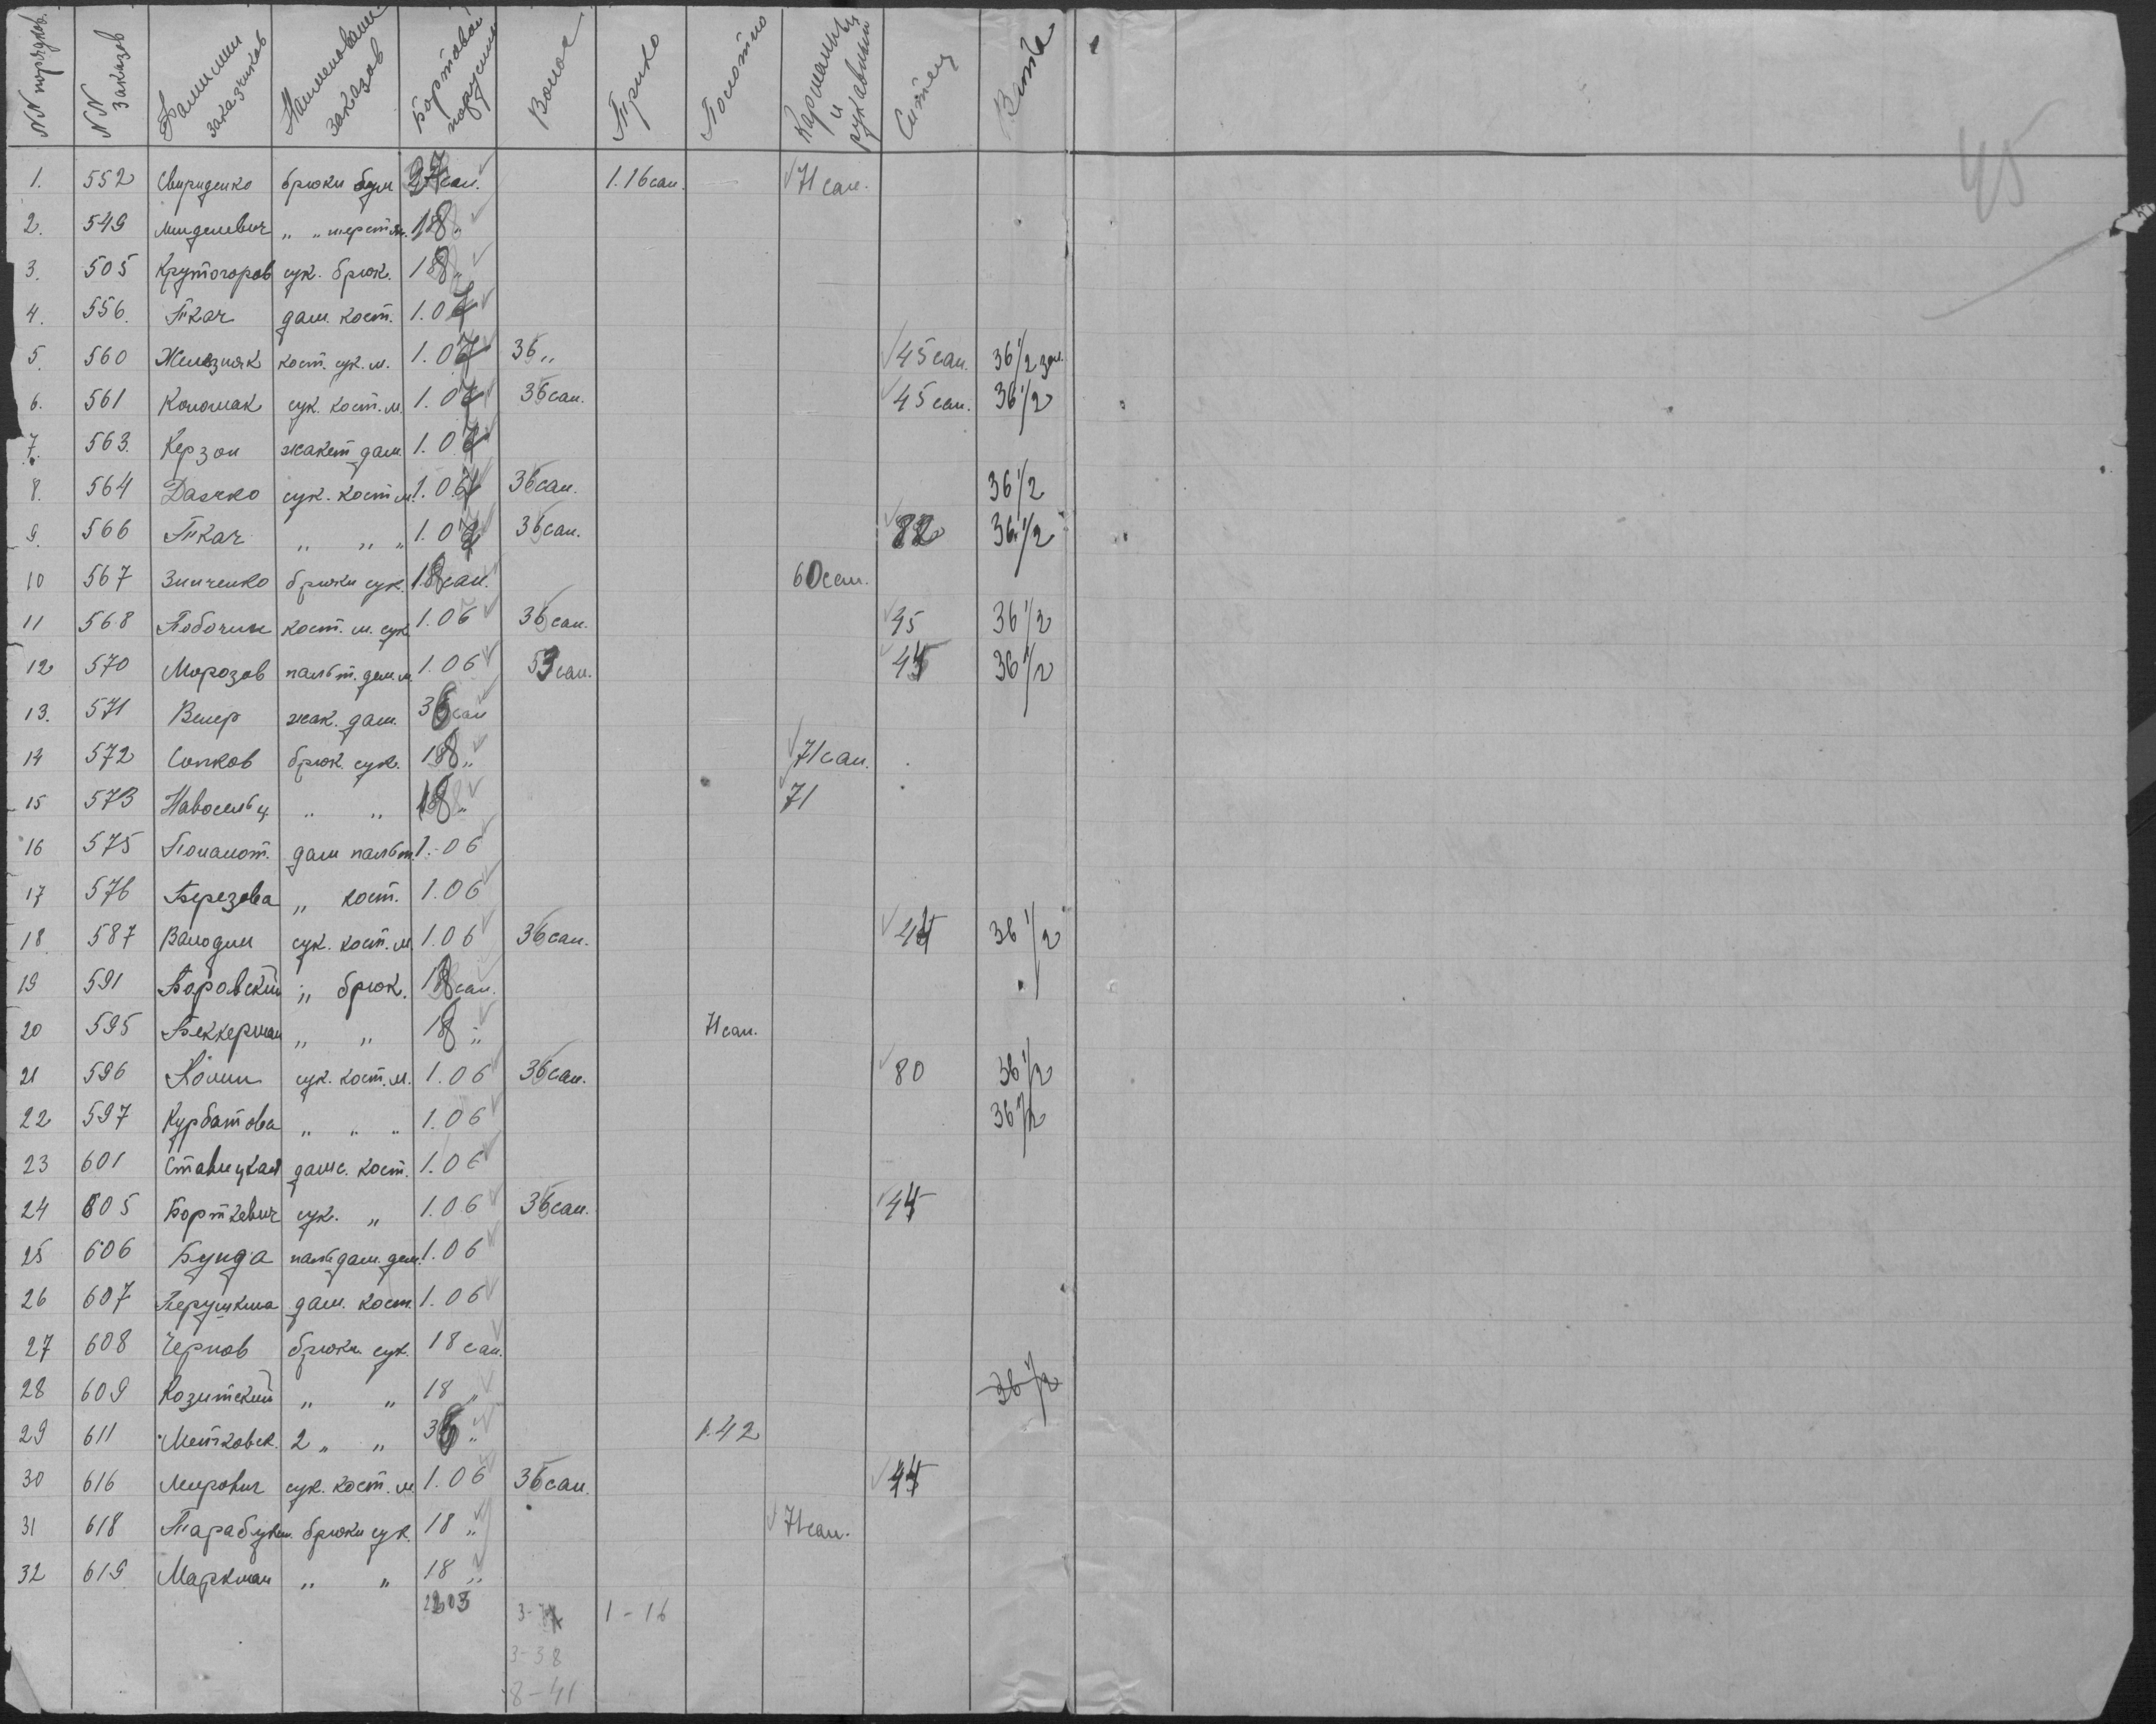 45
NN порядков. NN заказов Фамилии заказчиков Наименование заказов Бортовая парусина Волос Трико Полотно Карманн. и рукавным Ситец Вата
1. 552 Свириденко брюки бум 37 сан. 1.16 сан. — 71 сан.
2. 549 „ „ шерстян. 18 „
3. 505 Крутогоров сук. брюк. 18 „
4. 556. Ткач дам. кост. 1.07
5. 560 Железняк кост. сук. м. 1.07 36 „ 45 сан. 36 1/2
6. 561 Коломак сук. кост. м. 1.07 36 сан. 45 сан. 36 1/2
7. 563. Керзон жакет дам. 1.07
8. 564 Дасико сук. кост м. 1.07 36 сан. 36 1/2
9. 566 Ткач „ „ „ 1.07 36 сан. 82 36 1/2
10 567 Зинченко брюки сук. 18 сан. 60 сан.
11 568 Поборчин кост. м. сук. 1.06 36 сан. 45 36 1/2
12 570 Морозов пальт. дем м. 1.06 53 сан. 44 36 1/2
13. 571 Велер жак. дам. 36 сан
14 572 Сопков брюк. сук. 18 „ 71 сан.
15 573 Навосельц „ „ 18 „ 71
16 575 дам пальт. 1.-06
17 576 Березова „ кост. 1.06
18. 587 Валодин сук. кост. м. 1.06 36 сан. 44 36 1/2
19 591 Боровский „ брюк. 18 сан.
20 595 Беккерман „ „ 18 „ 71 сан.
21 596 сук. кост. м. 1.06 36 сан. 80 36 1/2
22 597 Курбатова „ „ „ 1.06 36 1/2
23 601 Ставицкая дамс. кост. 1.06
24 605 Борткевич сук. „ 1.06 36 сан. 44
25 606 Бунда пальт дам. дем. 1.06
26 607 Перушкина дам. кост. 1.06
27 608 Чернов брюки сук. 18 сан.
28 609 Козитский „ „ 18 „ 36 1/2
29 611 Метковск. 2 „ „ 36 „ 1.42
30 616 Мирович сук. кост. м 1.06 36 сан. 44
31 618 Тарабукин. брюки сук. 18 „ 71 сан.
32 619 Маркман „ „ 18 „
1 - 16
3 - 38
8 - 41